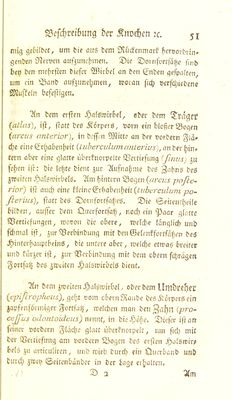 Beschreibung der Knochen ꝛc. 51
mig gebildet, um die aus dem Rückenmark hervordrin-
genden Nerven aufzunehmen. Die Dornfortsätze sind
bey den mehrsten dieser Wirbel an den Enden gespalten,
um ein Band aufzunehmen, woran sich verschiedene
Muskeln befestigen.
An dem ersten Halswirbel, oder dem Träger
(atlas), ist, statt des Körpers, vorn ein blosser Bogen
(arcus anterior), in dessen Mitte an der vordern Flä-
che eine Erhabenheit (tuberculum anterius), an der hin-
tern aber eine glatte überknorpelte Vertiefung (sinus), zu
sehen ist: die letzte dient zur Aufnahme des Zahns des
zweiten Halswirbels. Am hintern Bogen (arcus poste-
rior) ist auch eine kleine Erhabenheit (tuberculum po-
sterius), statt des Dornfortsatzes. Die Seitentheile
bilden, ausser dem Querfortsatz, noch ein Paar glatte
Vertiefungen, wovon die obere, welche länglich und
schmal ist, zur Verbindung mit den Gelenkfortsätzen des
Hinterhauptbeins, die untere aber, welche etwas breiter
und kürzer ist, zur Verbindung mit dem obern schrägen
Fortsatz des zweiten Halswirbels dient.
An dem zweiten Halswirbel, oder dem Umdreher
(epistropheus), geht vom obern Rande des Körpers ein
zapfenförmiger Fortsatz, welchen man den Zahn (pro-
cessus odontoideus) nennt, in die Höhe. Dieser ist an
seiner vordern Fläche glatt überknorpelt, um sich mit
der Vertiefung am vordern Bogen des ersten Halswirbels
zu articuliren, und wird durch ein Querband und
durch zwey Seitenbänder in der Lage erhalten.
D 2 Am